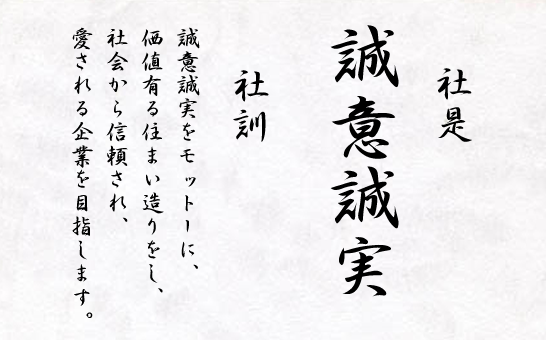 社是
誠意誠実
社訓
誠意誠実をモットーに、
価値有る住まい造りをし、
社会から信頼され、
愛される企業を目指します。